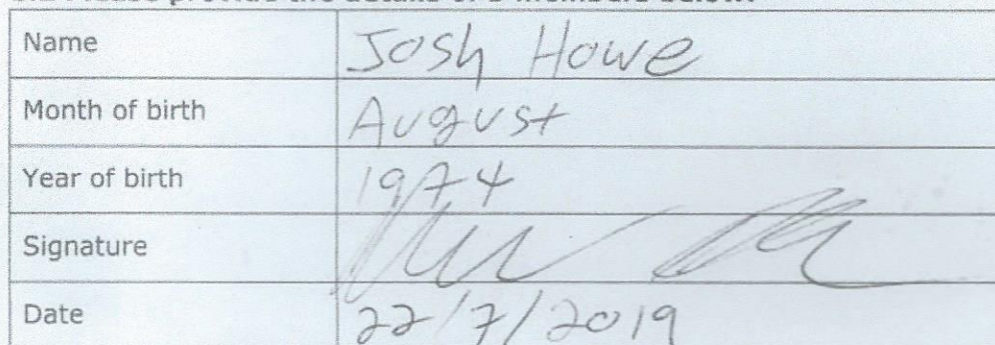 Name Josh Howe
Month of birth August
Year of birth 1974
Signature
Date 22/7/2019